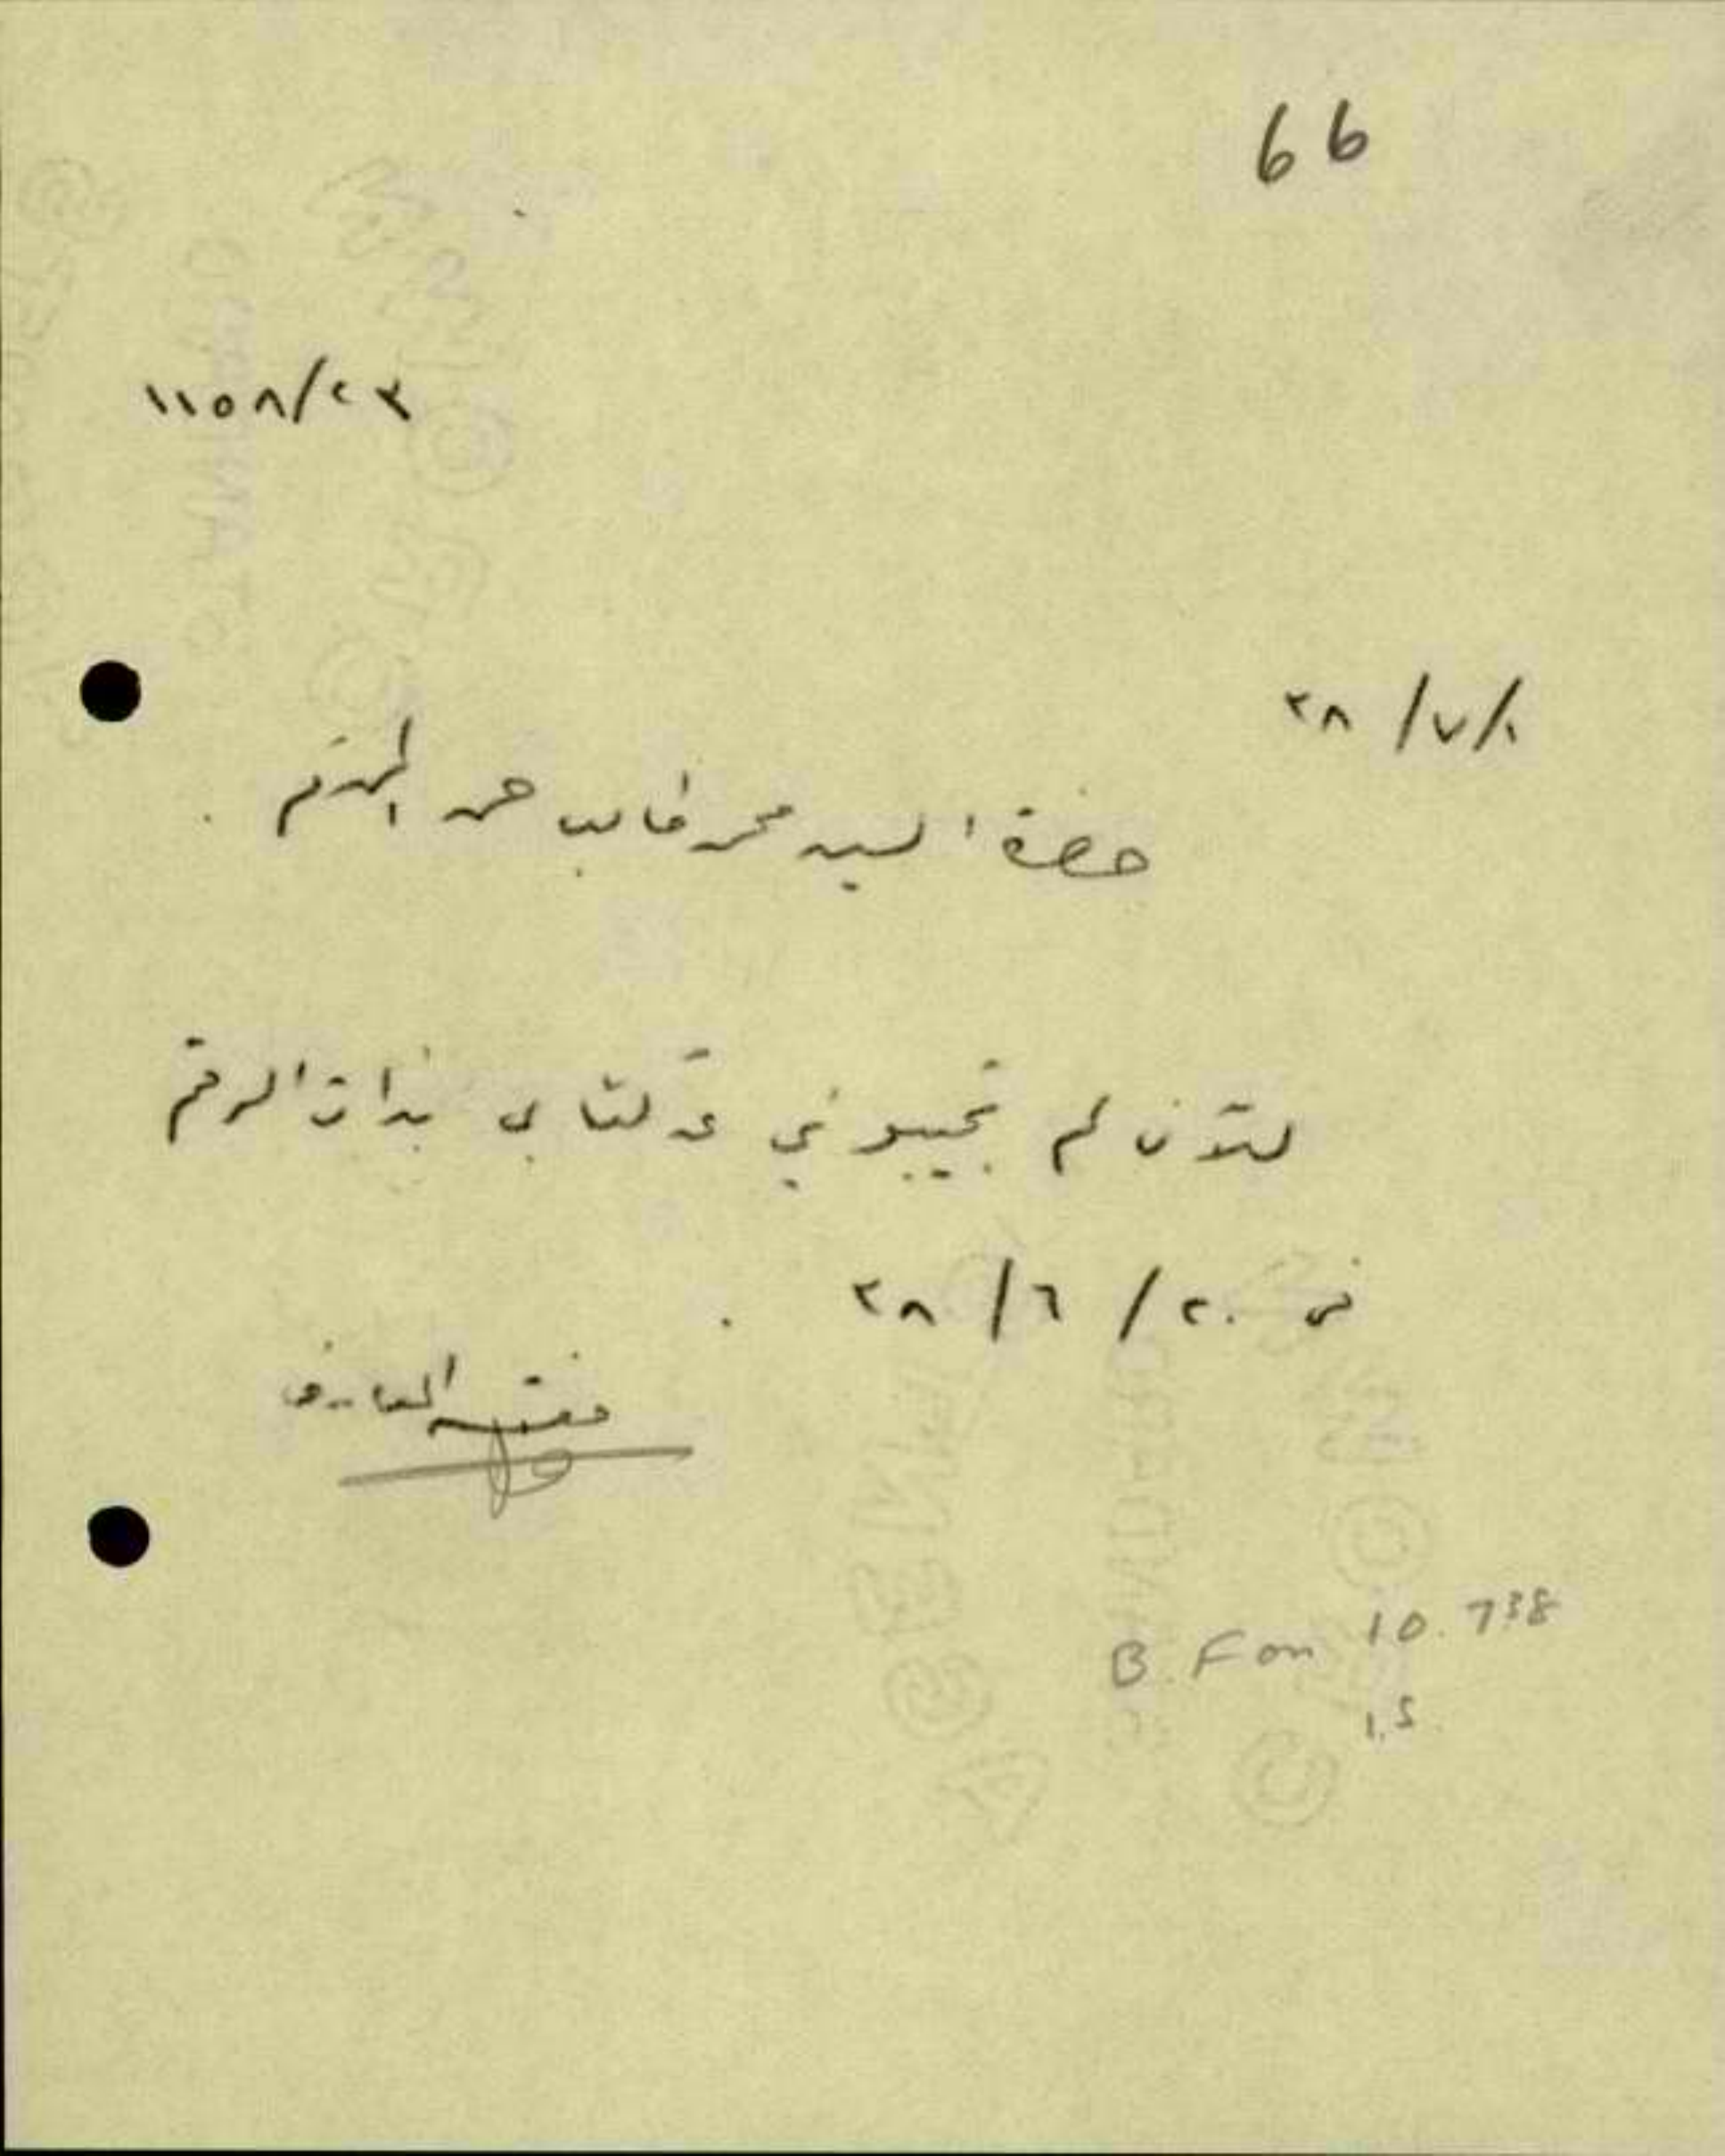 66
١١٥٨/٢٣
٣٨/٧/١
حضرة السيد محمد غالب حسن المحترم .
للآن لم تجيبوني عن كتابي بذات الرقم
في ٢٠/٦/٣٨ .
مفتش المعارف
B. F on 10.7.38